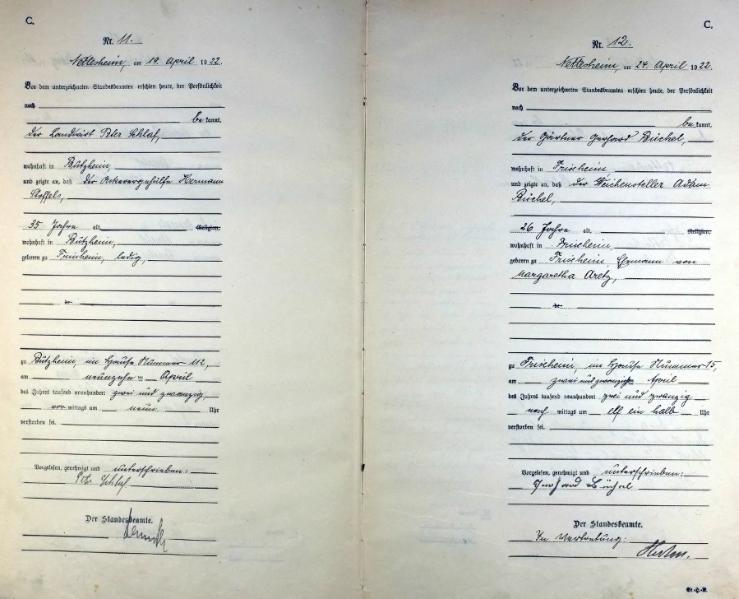 C.
Nr. 11.
Nettesheim, am 19. April 1922.
Vor dem unterzeichneten Standesbeamten erschien heute, der Persönlichkeit
nach
bekannt,
der Landwirt Peter Schlaf,
wohnhaft in Butzheim,
und zeigte an, daß der Ackerergehülfe Hermann
Stoffels,
35 Jahre alt, Religion,
wohnhaft in Butzheim,
geboren zu ledig,
zu Butzheim, im Hause Nummer 112,
am neunzehn April
des Jahres tausend neunhundert zwei und zwanzig,
vor mittags um neun Uhr
verstorben sei.
Vorgelesen, genehmigt und unterschrieben:
Pet. Schlaf
Der Standesbeamte.
C.
Nr. 12.
Nettesheim, am 24. April 1922.
Vor dem unterzeichneten Standesbeamten erschien heute, der Persönlichkeit
nach
bekannt,
der Gärtner Gerhard Büchel,
wohnhaft in Frixheim,
und zeigte an, daß der Weichensteller Adam
Büchel,
26 Jahre alt, Religion,
wohnhaft in Frixheim,
geboren zu Frixheim, Ehemann von
Margaretha Aretz,
zu Frixheim, im Hause Nummer 15,
am zwei und zwanzig April
des Jahres tausend neunhundert zwei und zwanzig
nach mittags um elf ein halb Uhr
verstorben sei.
Vorgelesen, genehmigt und unterschrieben:
Gerhard Büchel
Der Standesbeamte.
In Vertretung: